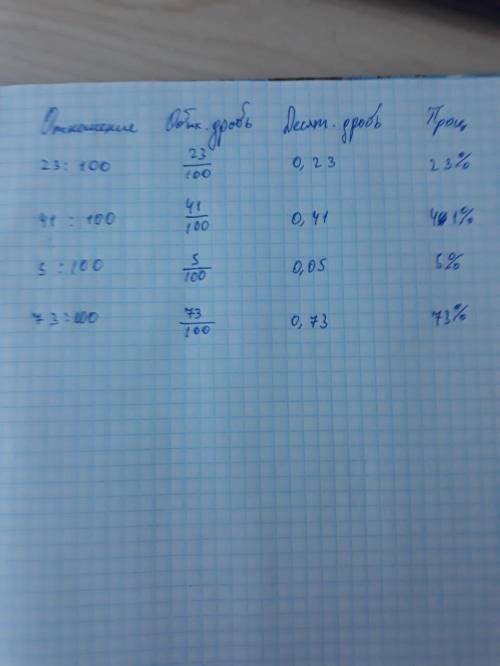 Отношение Обык. дробь Десят. дробь Проц
23 : 100 23/100 0,23 23%
41 : 100 41/100 0,41 41%
5 : 100 5/100 0,05 5%
73 : 100 73/100 0,73 73%